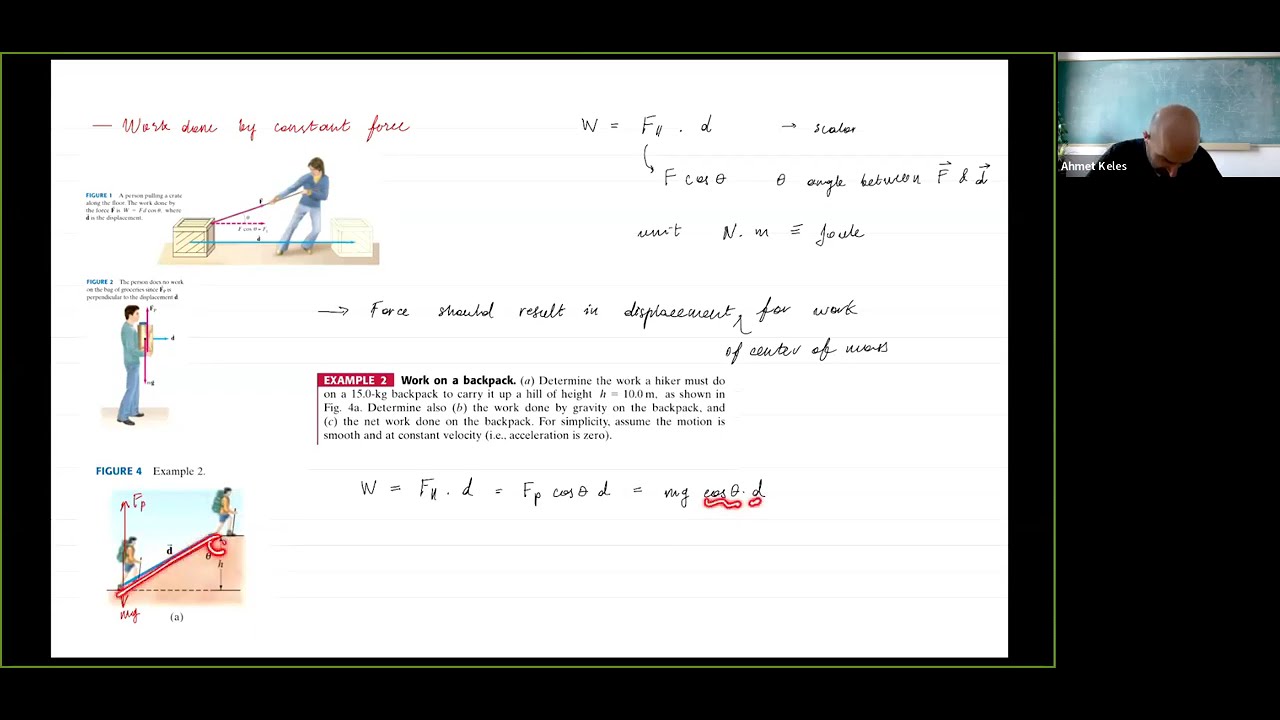 — Work done by constant force
W = F∥ . d → scalar
F cosθ θ angle between F⃗ & d⃗
unit N. m ≡ Joule
FIGURE 1 A person pulling a crate
along the floor. The work done by
the force F⃗ is W = Fd cos θ, where
d⃗ is the displacement.
F⃗
θ
F cos θ = F∥
d⃗
FIGURE 2 The person does no work
on the bag of groceries since F⃗P is
perpendicular to the displacement d⃗.
F⃗P
d⃗
→ Force should result in displacement for work
of center of mass
EXAMPLE 2 Work on a backpack. (a) Determine the work a hiker must do
on a 15.0-kg backpack to carry it up a hill of height h = 10.0 m, as shown in
Fig. 4a. Determine also (b) the work done by gravity on the backpack, and
(c) the net work done on the backpack. For simplicity, assume the motion is
smooth and at constant velocity (i.e., acceleration is zero).
FIGURE 4 Example 2.
W = F∥ . d = Fp cosθ d = mg cosθ. d
Fp
d⃗
θ
h
mg
(a)
Ahmet Keles